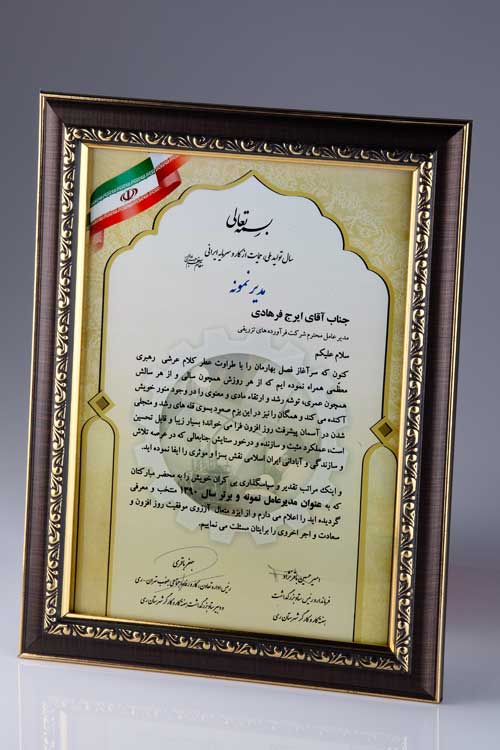 بسمه تعالی
سال تولید ملی، حمایت از کار و سرمایه ایرانی
مدیر نمونه
جناب آقای ایرج فرهادی
مدیرعامل محترم شرکت فرآورده های تزریقی
سلام علیکم
کنون که سرآغاز فصل بهارمان را با طراوت عطر کلام عرشی رهبری
معظّمی همراه نموده ایم که از هر روزش همچون سالی و از هر سالش
همچون عمری، توشه رشد و ارتقاء مادی و معنوی را در وجود منور خویش
آکنده می کند و همگان را نیز در این بزم صعود بسوی قله های رشد و متجلی
شدن در آسمان پیشرفت روز افزون فرا می خواند؛ بسیار زیبا و قابل تحسین
است، عملکرد مثبت و سازنده و درخور ستایش جنابعالی که در عرصه تلاش
و سازندگی و آبادانی ایران اسلامی نقش بسزا و موثری را ایفا نموده اید.
و اینکه مراتب تقدیر و سپاسگذاری بی کران خویش را به محضر مبارکتان
که به عنوان مدیرعامل نمونه و برتر سال ۱۳۹۰ منتخب و معرفی
گردیده اید را اعلام می دارم و از ایزد متعال آرزوی موفقیت روز افزون و
سعادت و اجر اخروی را برایتان مسئلت می نماییم.
فرماندار و رئیس ستاد بزرگداشت
هفته کار و کارگر شهرستان ری
جعفر باقری
رئیس اداره تعاون، کار و رفاه اجتماعی جنوب تهران - ری
و دبیر ستاد بزرگداشت هفته کار و کارگر شهرستان ری